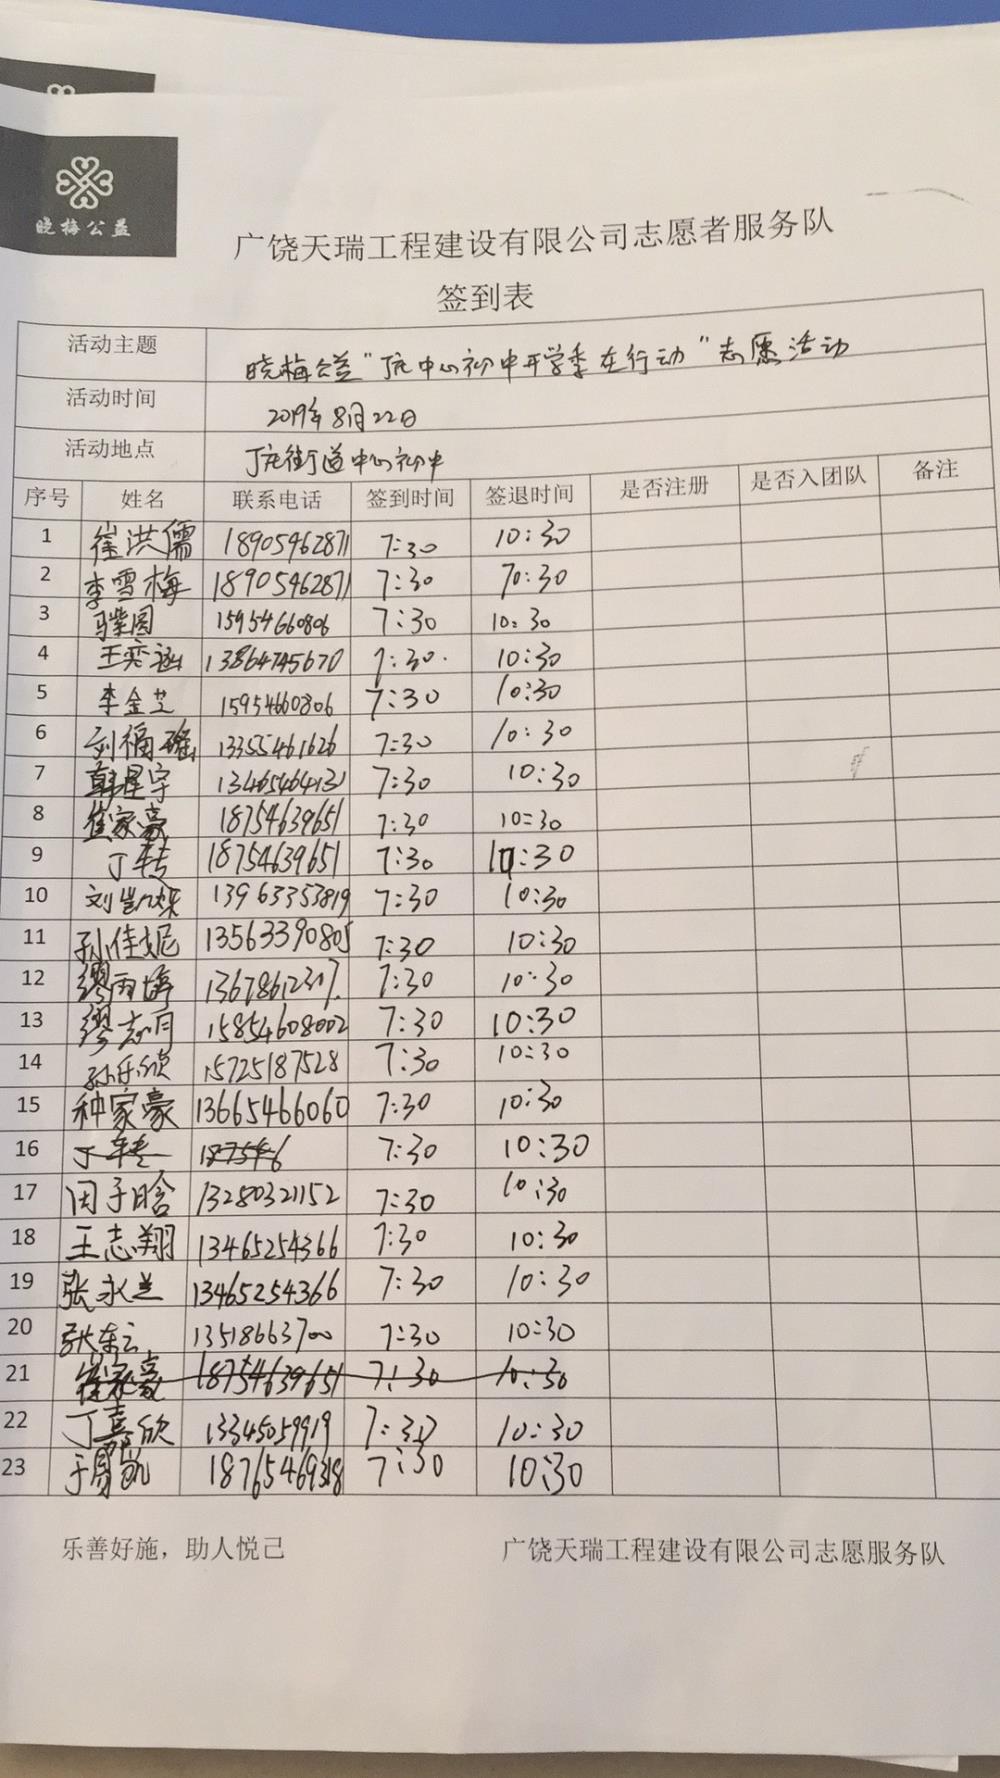 晓梅公益
广饶天瑞工程建设有限公司志愿者服务队
签到表
活动主题 晓梅公益"丁庄中心初中开学季在行动"志愿活动
活动时间 2019年8月22日
活动地点 丁庄街道中心初中
序号 姓名 联系电话 签到时间 签退时间 是否注册 是否入团队 备注
1 崔洪儒 18905462871 7:30 10:30
2 李雪梅 18905462871 7:30 10:30
3 15954660806 7:30 10:30
4 王奕涵 13864745670 7:30 10:30
5 李金芝 15954660806 7:30 10:30
6 刘福瑶 13355461626 7:30 10:30
7 韩星宇 13465464131 7:30 10:30
8 崔家豪 18754639651 7:30 10:30
9 丁转 18754639651 7:30 10:30
10 刘凯烁 13963353819 7:30 10:30
11 孙佳妮 13563390805 7:30 10:30
12 缪雨婷 7:30 10:30
13 缪志月 15854608002 7:30 10:30
14 15725187528 7:30 10:30
15 种家豪 13665466060 7:30 10:30
16 丁转 187546 7:30 10:30
17 田子晗 13280321152 7:30 10:30
18 王志翔 13465254366 7:30 10:30
19 张永兰 13465254366 7:30 10:30
20 张东云 13518663700 7:30 10:30
21 崔家豪 18754639651 7:30 10:30
22 丁嘉欣 13345059919 7:30 10:30
23 18765469318 7:30 10:30
乐善好施，助人悦己 广饶天瑞工程建设有限公司志愿服务队